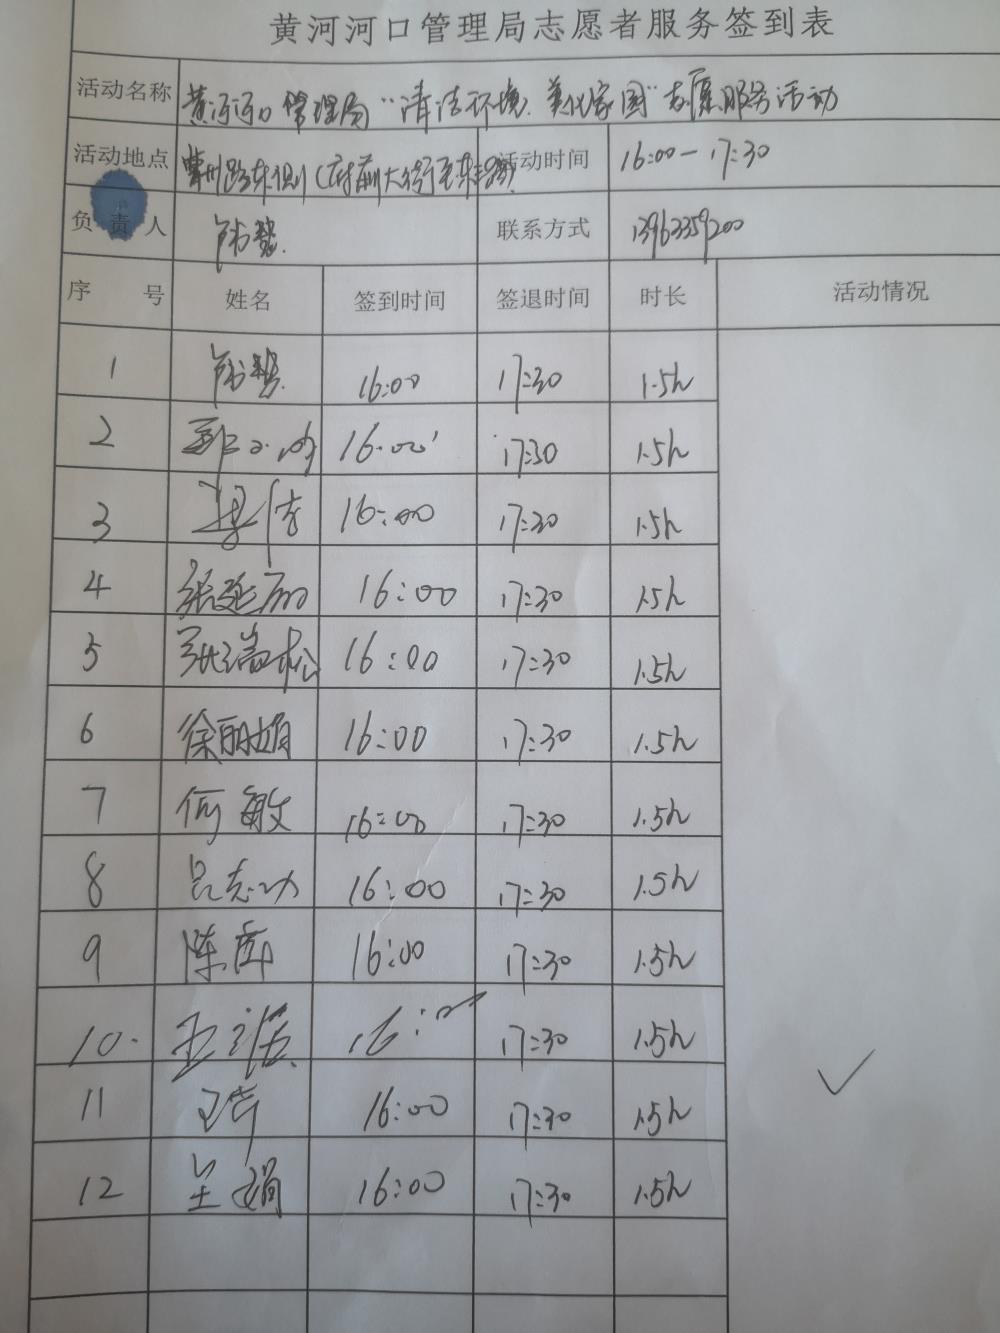 黄河河口管理局志愿者服务签到表
活动名称 黄河河口管理局“清洁环境、美化家园”志愿服务活动
活动地点 (府前大街至 活动时间 16:00-17:30
负责人 联系方式 13963359200
序号 姓名 签到时间 签退时间 时长 活动情况
1 16:00 17:30 1.5h
2 16:00 17:30 1.5h
3 16:00 17:30 1.5h
4 张延 16:00 17:30 1.5h
5 张瑞松 16:00 17:30 1.5h
6 徐丽娟 16:00 17:30 1.5h
7 何敏 16:00 17:30 1.5h
8 吕志功 16:00 17:30 1.5h
9 陈 16:00 17:30 1.5h
10. 王 16:00 17:30 1.5h
11 16:00 17:30 1.5h
12 娟 16:00 17:30 1.5h